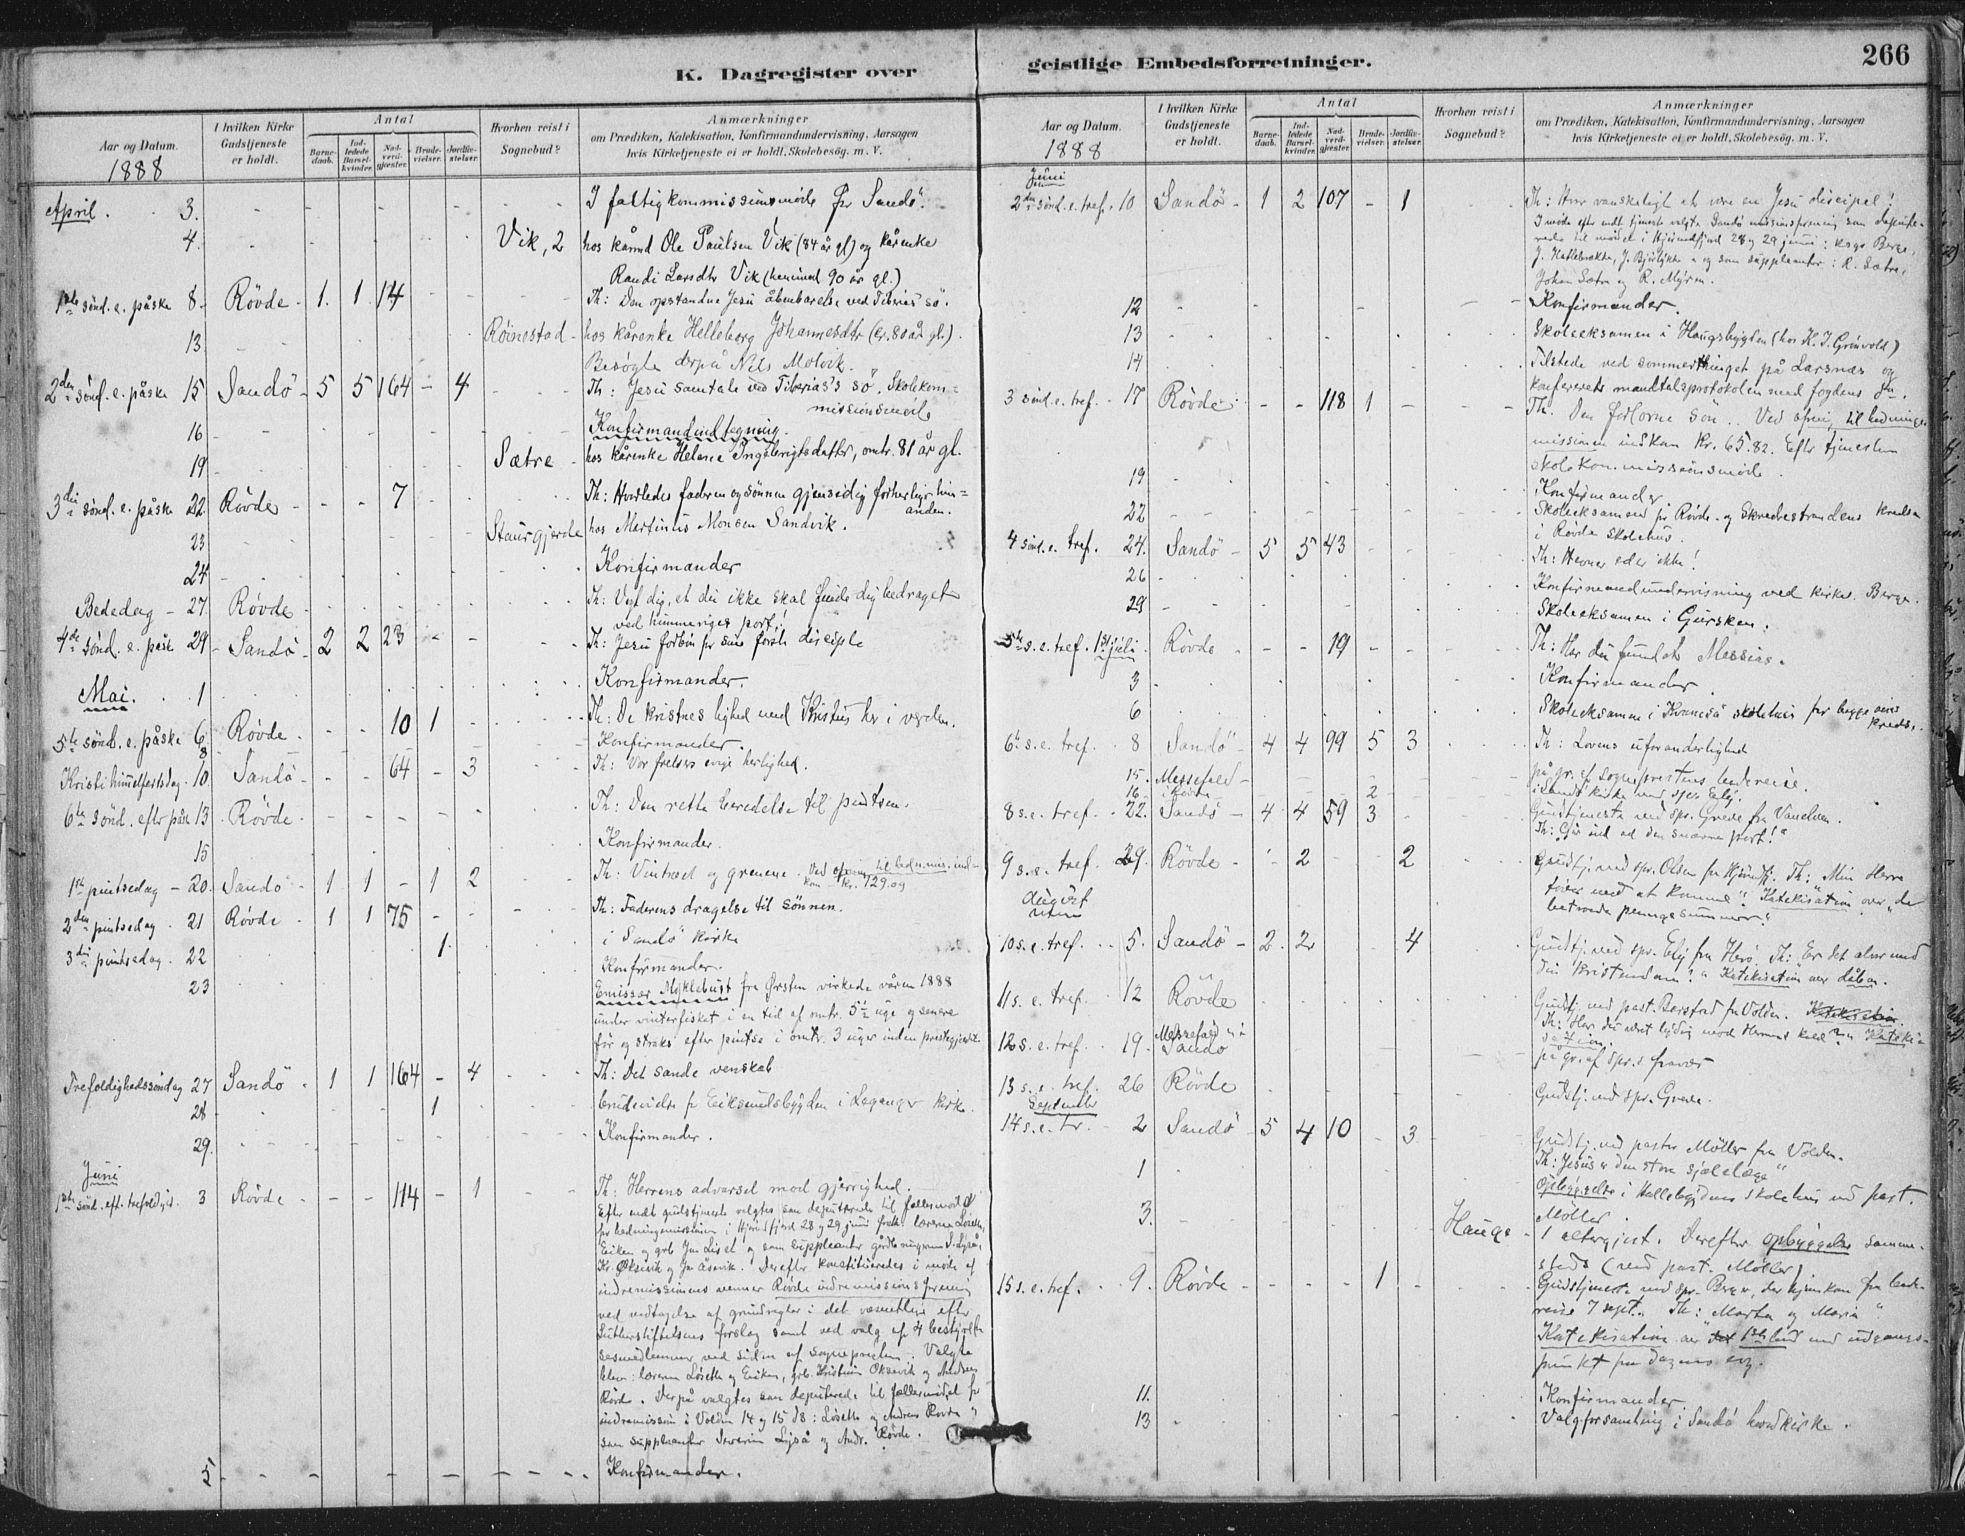 266
K. Dagregister over geistlige Embedsforretninger.
Aar og Datum.
1888
I hvilken Kirke Gudstjeneste er holdt.
Antal
Barnedaab.
Indledede Barselkvinder.
Nadverdgjæster.
Brudevielser.
Jordfæstelser.
Hvorhen reist i Sognebud?
Anmærkninger
om Prædiken, Katekisation, Konfirmandundervisning, Aarsagen
hvis Kirketjeneste ei er holdt, Skolebesøg. m. V.
April. 3. I fattigkommissionsmöde for Sandö.
4. Vik, 2 hos kårmd Ole Paulsen Vik (84 år gl) og kårenke
Randi Larsdtr Vik (henimod 90 år gl.)
1ste sönd. e. påske 8. Rövde 1. 1 14 Th: Den opstandne Jesu åbenbarelse ved Tiberias sö.
13 Röinestad hos kårenke Helleborg Johannesdtr (ca. 80 år gl.)
Besögte derpå Nils Molvik.
2den sönd. e. påske 15 Sandö 5 5 164 – 4 Th: Jesu samtale ved Tiberias's sö. Skolekom-
missionsmöde
16 Konfirmandindtegning.
19 Sætre hos kårenke Helene Ingebrigtsdatter, omtr. 81 år gl.
3die sönd. e. påske 22. Rövde 7 Th: Hvorledes faderen og sönnen gjensidig forherliger hin-
anden.
23 Staurgjerde hos Martinus Monsen Sandvik.
24 Konfirmander
Bededag – 27. Rövde Th: Vogt dig, at du ikke skal finde dig bedraget
ved himmeriges port!
4de sönd. e. påske 29 Sandö 2 2 23 Th: Jesu forbön for sine förste disciple
Mai. 1 Konfirmander.
5te sönd. e. påske 6 Rövde 10 1 Th: De kristnes lighed med Kristus her i verden.
8 Konfirmander.
Kristi himmelfartsdag. 10 Sandö 64 – 3 Th: Vor frelsers evige herlighed.
6te sönd. efter påske 13 Rövde Th: Den rette beredelse til pintsen.
15 Konfirmander.
1ste pintsedag – 20. Sandö 1 1 – 1 2 Th: Vintræet og grenene. Ved ofring til hedn.mis. ind-
kom Kr. 129.09
2den pintsedag. 21 Rövde 1 1 75 Th: Faderens dragelse til sönnen.
3die pintsedag. 22 1 i Sandö kirke
23 Konfirmander.
Emissær Myklebust fra Örsten virkede våren 1888
under vinterfisket i en tid af omtr. 5½ uge og senere
för og straks efter pintse i omtr. 3 uger inden prestegjeldet.
Trefoldighedssöndag 27 Sandö 1 1 164 – 4 Th: Det sande venskab
28 1 brudevielse for Eiksundsbygden i Leganger kirke.
29. Konfirmander.
Juni
1ste sönd. eft. trefoldigh. 3 Rövde 114 – 1 Th: Herrens advarsel mod gjerrighed.
Efter endt gudstjeneste valgtes som deputerede til fællesmödet
for hedningemissionen i Hjörundfjord 28 og 29 juni lærerne Löseth,
Kr. Öksevik og Jn Åsevik. Derefter konstitueredes i möde af
indremissionens venner Rövde indremissionsforening
ved vedtagelse af grundregler i det væsentlige efter
Lutherstiftelsens forslag samt ved valg af 4 bestyrel-
sesmedlemmer ved siden af sognepresten. Valgte
blev: lærerne Löseth og Eiken, grb. Kristian Öksevik og Andreas
Rövde. Derpå valgtes som deputerede til fællesmödet for
indremission i Volden 14 og 15 ds: Löseth og Andreas Rövde
som suppleanter Severin Lyså og Andr. Rövde.
5 Konfirmander.
Aar og Datum.
1888
I hvilken Kirke Gudstjeneste er holdt.
Antal
Barnedaab.
Indledede Barselkvinder.
Nadverdgjæster.
Brudevielser.
Jordfæstelser.
Hvorhen reist i Sognebud?
Anmærkninger
om Prædiken, Katekisation, Konfirmandundervisning, Aarsagen
hvis Kirketjeneste ei er holdt, Skolebesög. m. V.
Juni
2den sönd. e. tref. 10 Sandö 1 2 107 – 1 Th: Hvor vanskeligt at være en Jesu discipel!
I möde efter endt tjeneste valgte Sandö missionsforening som depute-
rede til mödet i Hjörundfjord 28 og 29 juni: kogs Berge,
og som suppleanter: R. Sætre,
Johan Sætre og R. Myren.
12 Konfirmander.
13 Skoleeksamen i Haugsbygden (hos K. J. Grönvold)
14 Tilstede ved sommerthinget på Larsnæs og
konfererede mandtalsprotokolen med fogdens
3 sönd. e. tref. – 17 Rövde – – 118 1 Th. Den forlorne sön. Ved ofring til hedninge-
missionen indkom Kr. 65.82. Efter tjenesten
skolekommissionsmöde.
19 Konfirmander.
22 Skoleeksamen for Rövde- og Skredestrandens kredse
i Rövde skolehus.
4 sönd. e. tref. 24. Sandö 5 5 43 Th: Hevner eder ikke!
26 Konfirmandundervisning ved kirkes. Berge.
29 Skoleeksamen i Gursken.
5te s. e. tref. 1ste juli Rövde 19 Th: Har du fundet Messias.
3 Konfirmander.
6 Skoleeksamen i Kvamså skolehus for begge
kredse.
6te s. e. tref. 8 Sandö 4 4 99 5 3 Th: Lovens uforanderlighed
15. Messefald på gr. af sogneprestens
16 2 i Sandö kirke ved spr.
8 s. e. tref. 22. Sandö 4 4 59 3 Gudstjeneste ved spr. Grede fra Vanelven.
Th: Går ind ad den snævre port!"
9 s. e. tref. 29. Rövde – 2 2 Gudstj. ved spr. Olsen fra Hjörundfj. Th: Min Herre
töver med at komme". Katekisation over "de
betroede pengesummer".
August
10 s. e. tref. 5. Sandö 2. 2 4 Gudstj. ved spr. fra Herö. Th: Er det alvor med
din kristendom?" Katekisation over dåben.
11 s. e. tref. 12 Rövde Gudstj. ved past. Barstad fra Volden.
Th: Har du været lydig mod Herrens kald?" Kateki-
sation.
12 s. e. tref. 19. Messefald i Sandö på gr. af spr.s fravær
13 s. e. tref. 26 Rövde Gudstj. ved spr. Grede.
September
14 s. e. tr. 2 Sandö 5 4 10 – 3 Gudstj. ved pastor Möller fra Volden.
Th: Jesus er den store sjælelæge"
1 Opbyggelse i Hallebygdens skolehus ved past.
Möller.
3. Hauge 1 altergjest. Derefter opbyggelse samme-
steds (ved past. Möller)
15 s. e. tref. 9. Rövde 1 Gudstjeneste ved spr. Berge, der hjemkom fra
reise 7 sept. Th: "Martha og Maria".
Katekisation over 1ste bud med udgangs-
punkt fra dagens evg.
11. Konfirmander.
13 Valgforsamling i Sandö hovedkirke.